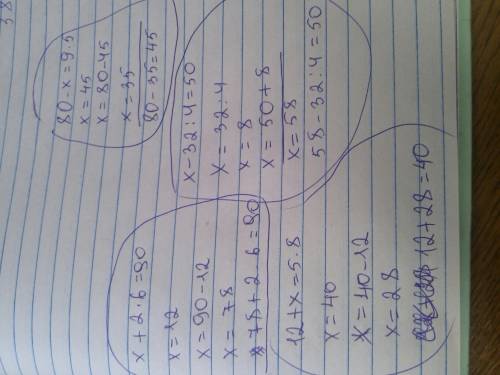 38
x+2·6=90
x=12
x=90-12
x=78
78+2·6=90
12+x=5·8
x=40
x=40-12
x=28
12+28=40
80-x=9·5
x=45
x=80-45
x=35
80-35=45
x-32:4=50
x=32:4
x=8
x=50+8
x=58
58-32:4=50